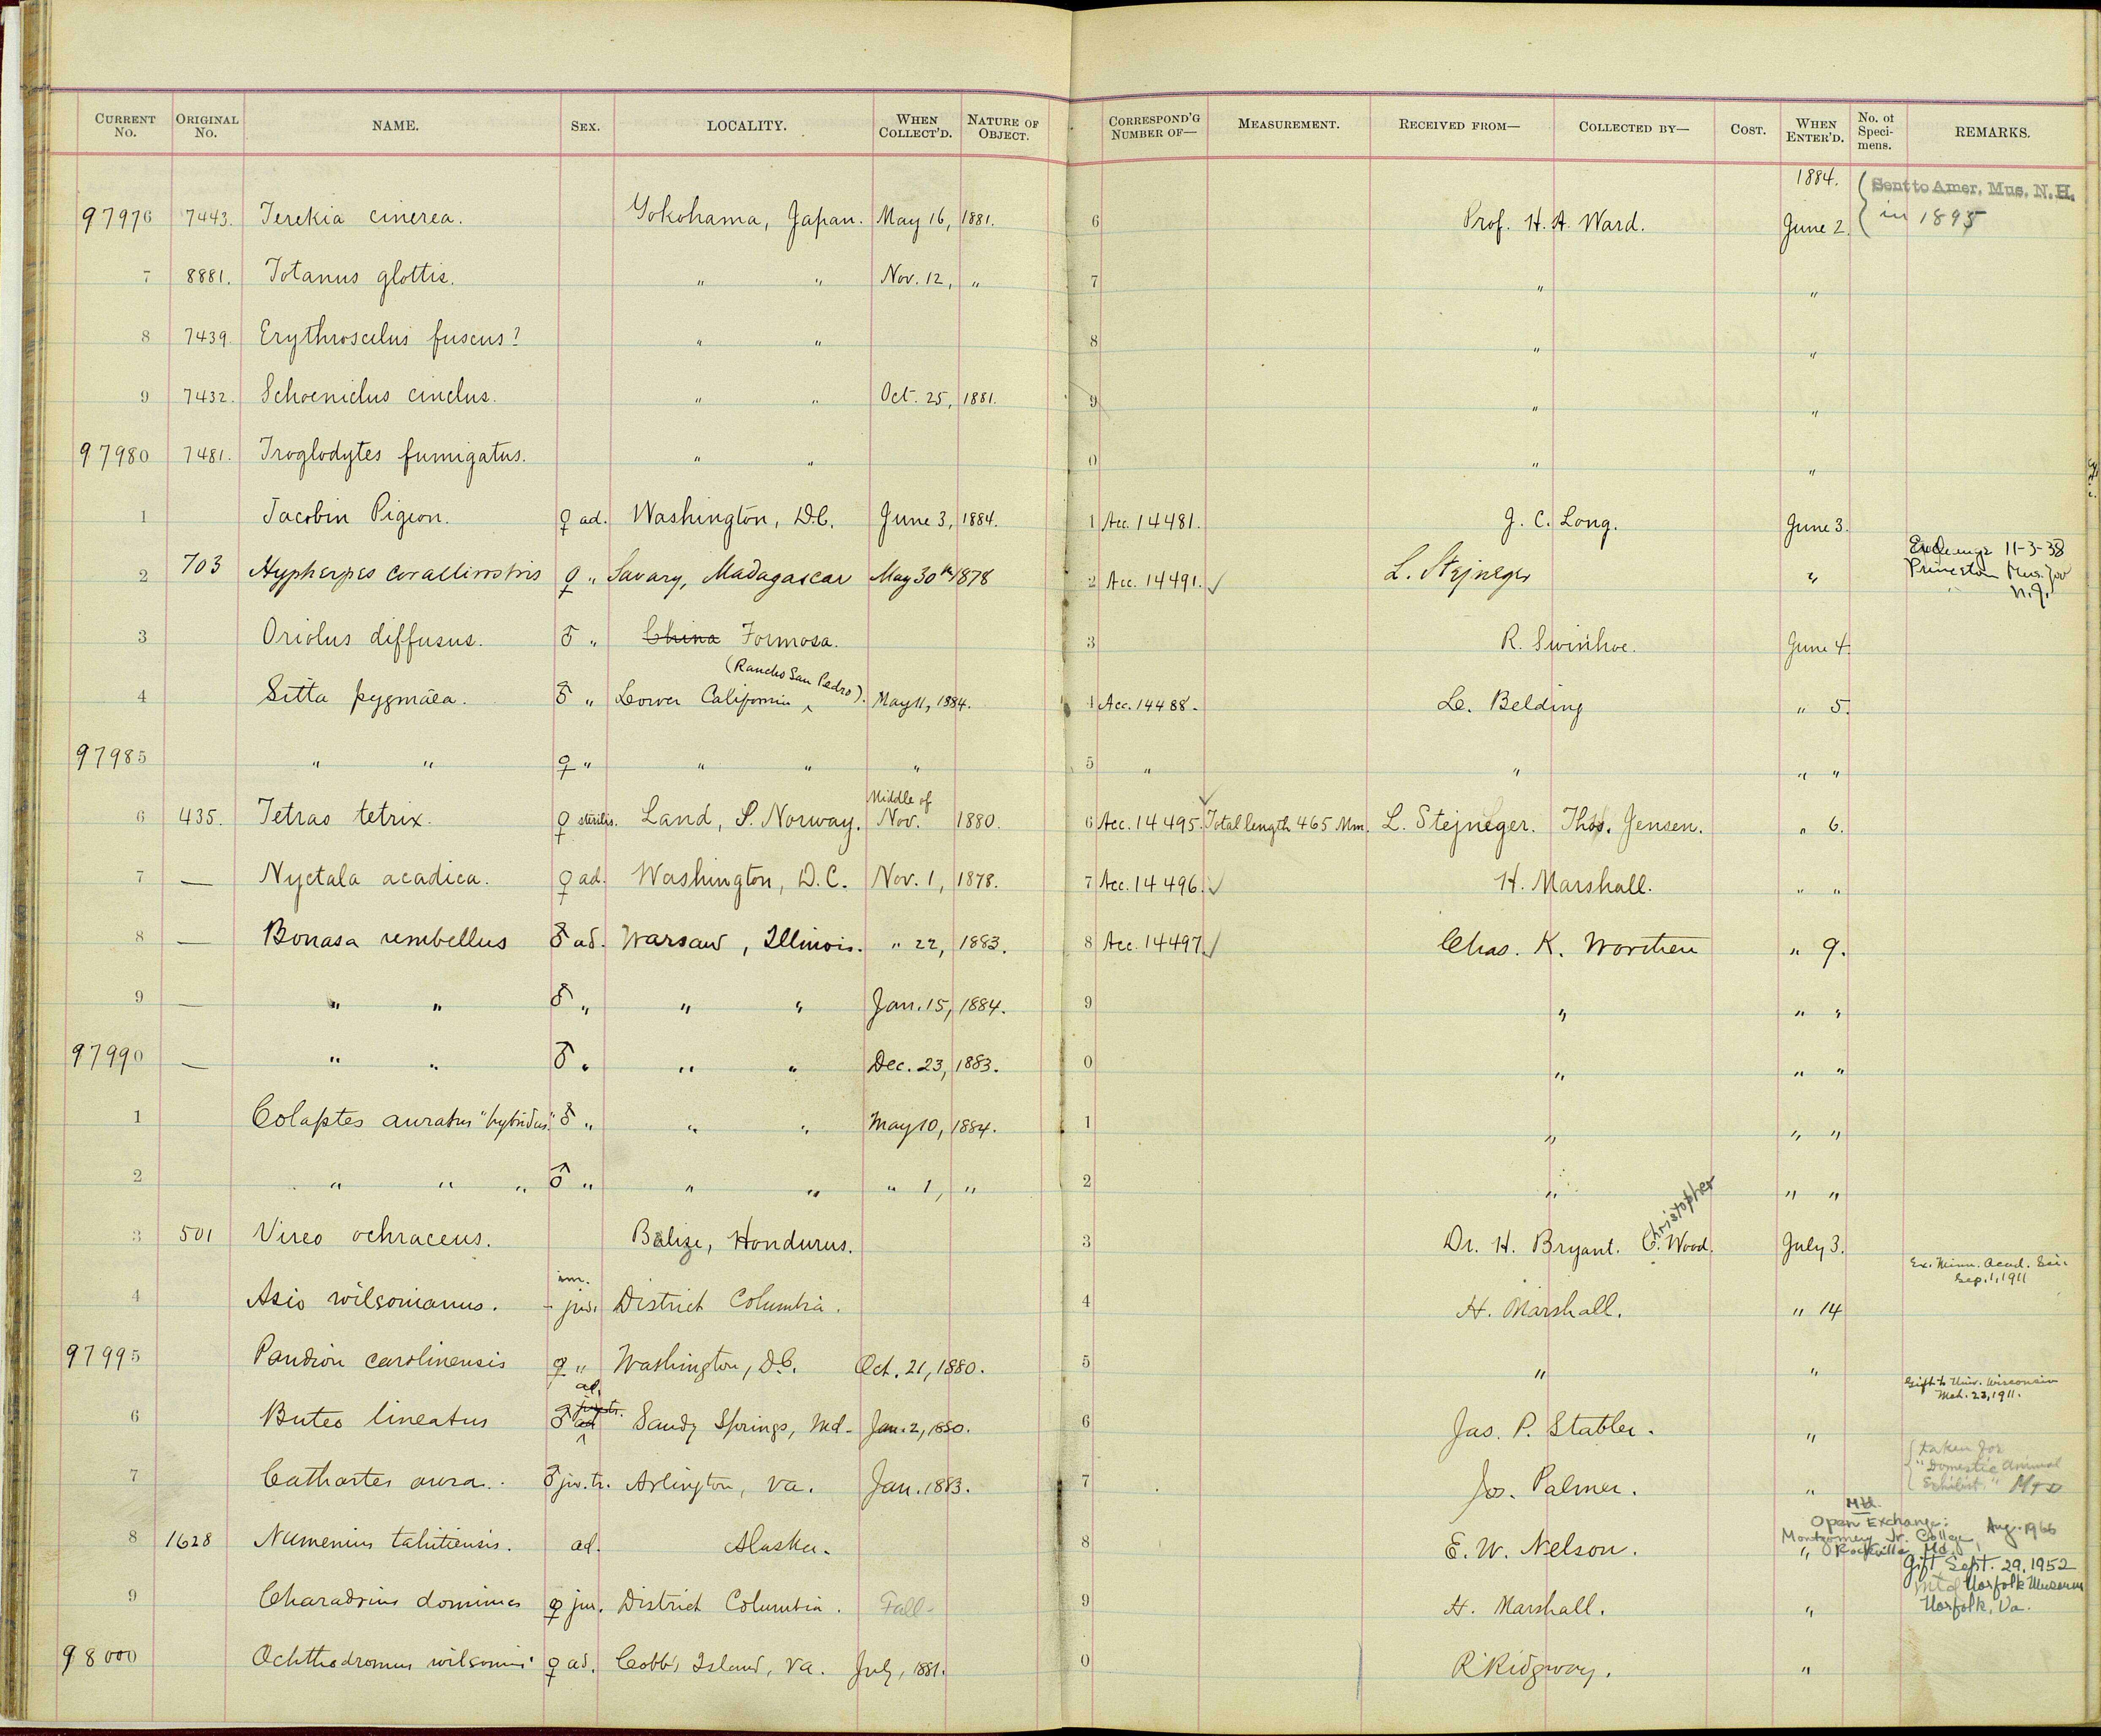 CURRENT No. ORIGINAL No. NAME. SEX. LOCALITY. WHEN COLLECT'D. NATURE OF OBJECT. CORRESPOND'G NUMBER OF— MEASUREMENT. RECEIVED FROM— COLLECTED BY— COST. WHEN ENTER'D. No. of Speci-mens. REMARKS.
1884. Sent to Amer. Mus. N.H.
97976 7443. Terekia cinerea. Yokohama, Japan. May 16, 1881. 6 Prof. H. A. Ward. June 2. in 1895
7 8881. Totanus glottis. " " Nov. 12, " 7 " "
8 7439. Erythroscelus fuscus? " " 8 " "
9 7432. Schoeniclus cinclus. " " Oct. 25, 1881. 9 " "
97980 7481. Troglodytes fumigatus. " " 0 " "
1 Jacobin Pigeon. ♀ ad. Washington, D.C. June 3, 1884. 1 Acc. 14481. J. C. Long. June 3.
2 703 Hypherpes corallirostris ♀ " Savary, Madagascar May 30th 1878 2 Acc. 14491. ✓ L. Stejneger " Exchange 11-3-38 Princeton Mus. Zoo N.J.
3 Oriolus diffusus. ♂ " China Formosa. 3 R. Swinhoe. June 4.
(Rancho San Pedro).
4 Sitta pygmæa. ♂ " Lower California ‸ May 11, 1884. 4 Acc. 14488. L. Belding " 5.
97985 " " ♀ " " " " 5 " " " "
Middle of
6 435. Tetrao tetrix. ♀ sterilis. Land, S. Norway. Nov. 1880. 6 Acc. 14495. ✓ Total length 465 Mm. L. Stejneger. Thos. Jensen. " 6.
7 — Nyctala acadica. ♀ ad. Washington, D.C. Nov. 1, 1878. 7 Acc. 14496. ✓ H. Marshall. " "
8 — Bonasa umbellus ♂ ad. Warsaw, Illinois. " 22, 1883. 8 Acc. 14497. ✓ Chas. K. Worthen " 9.
9 — " " ♂ " " " Jan. 15, 1884. 9 " " "
97990 — " " ♂ " " " Dec. 23, 1883. 0 " " "
1 Colaptes auratus "hybridus" ♂ " " " May 10, 1884. 1 " " "
2 " " " ♂ " " " " 1, " 2 " " "
Christopher
3 501 Vireo ochraceus. Belize, Hondurus. 3 Dr. H. Bryant. C. Wood. July 3.
im. Ex. Minn. Acad. Sci. Sep. 1, 1911
4 Asio wilsonianus. - juv. District Columbia. 4 H. Marshall. " 14
97995 Pandion carolinensis ♀ " Washington, D.C. Oct. 21, 1880. 5 " "
ad. Gift to Univ. Wisconsin Mch. 23, 1911.
6 Buteo lineatus ♂ ad Sandy Springs, Md. Jan. 2, 1880. 6 Jas. P. Stabler. "
7 Cathartes aura. ♂ juv. tr. Arlington, Va. Jan. 1883. 7 Jos. Palmer. " Taken for "Domestic Animal Exhibit."
Mtd. Open Exchange: Montgomery Jr. College, Rockville Md. Aug. 1966
8 1628 Numenius tahitiensis. ad. Alaska. 8 E. W. Nelson. "
9 Charadrius dominicus ♀ juv. District Columbia. Fall. 9 H. Marshall. " Gift Sept. 29, 1952 Mtd Norfolk Museum Norfolk, Va.
98000 Ochthodromus wilsonius ♀ ad. Cobb's Island, Va. July, 1881. 0 R. Ridgway. "